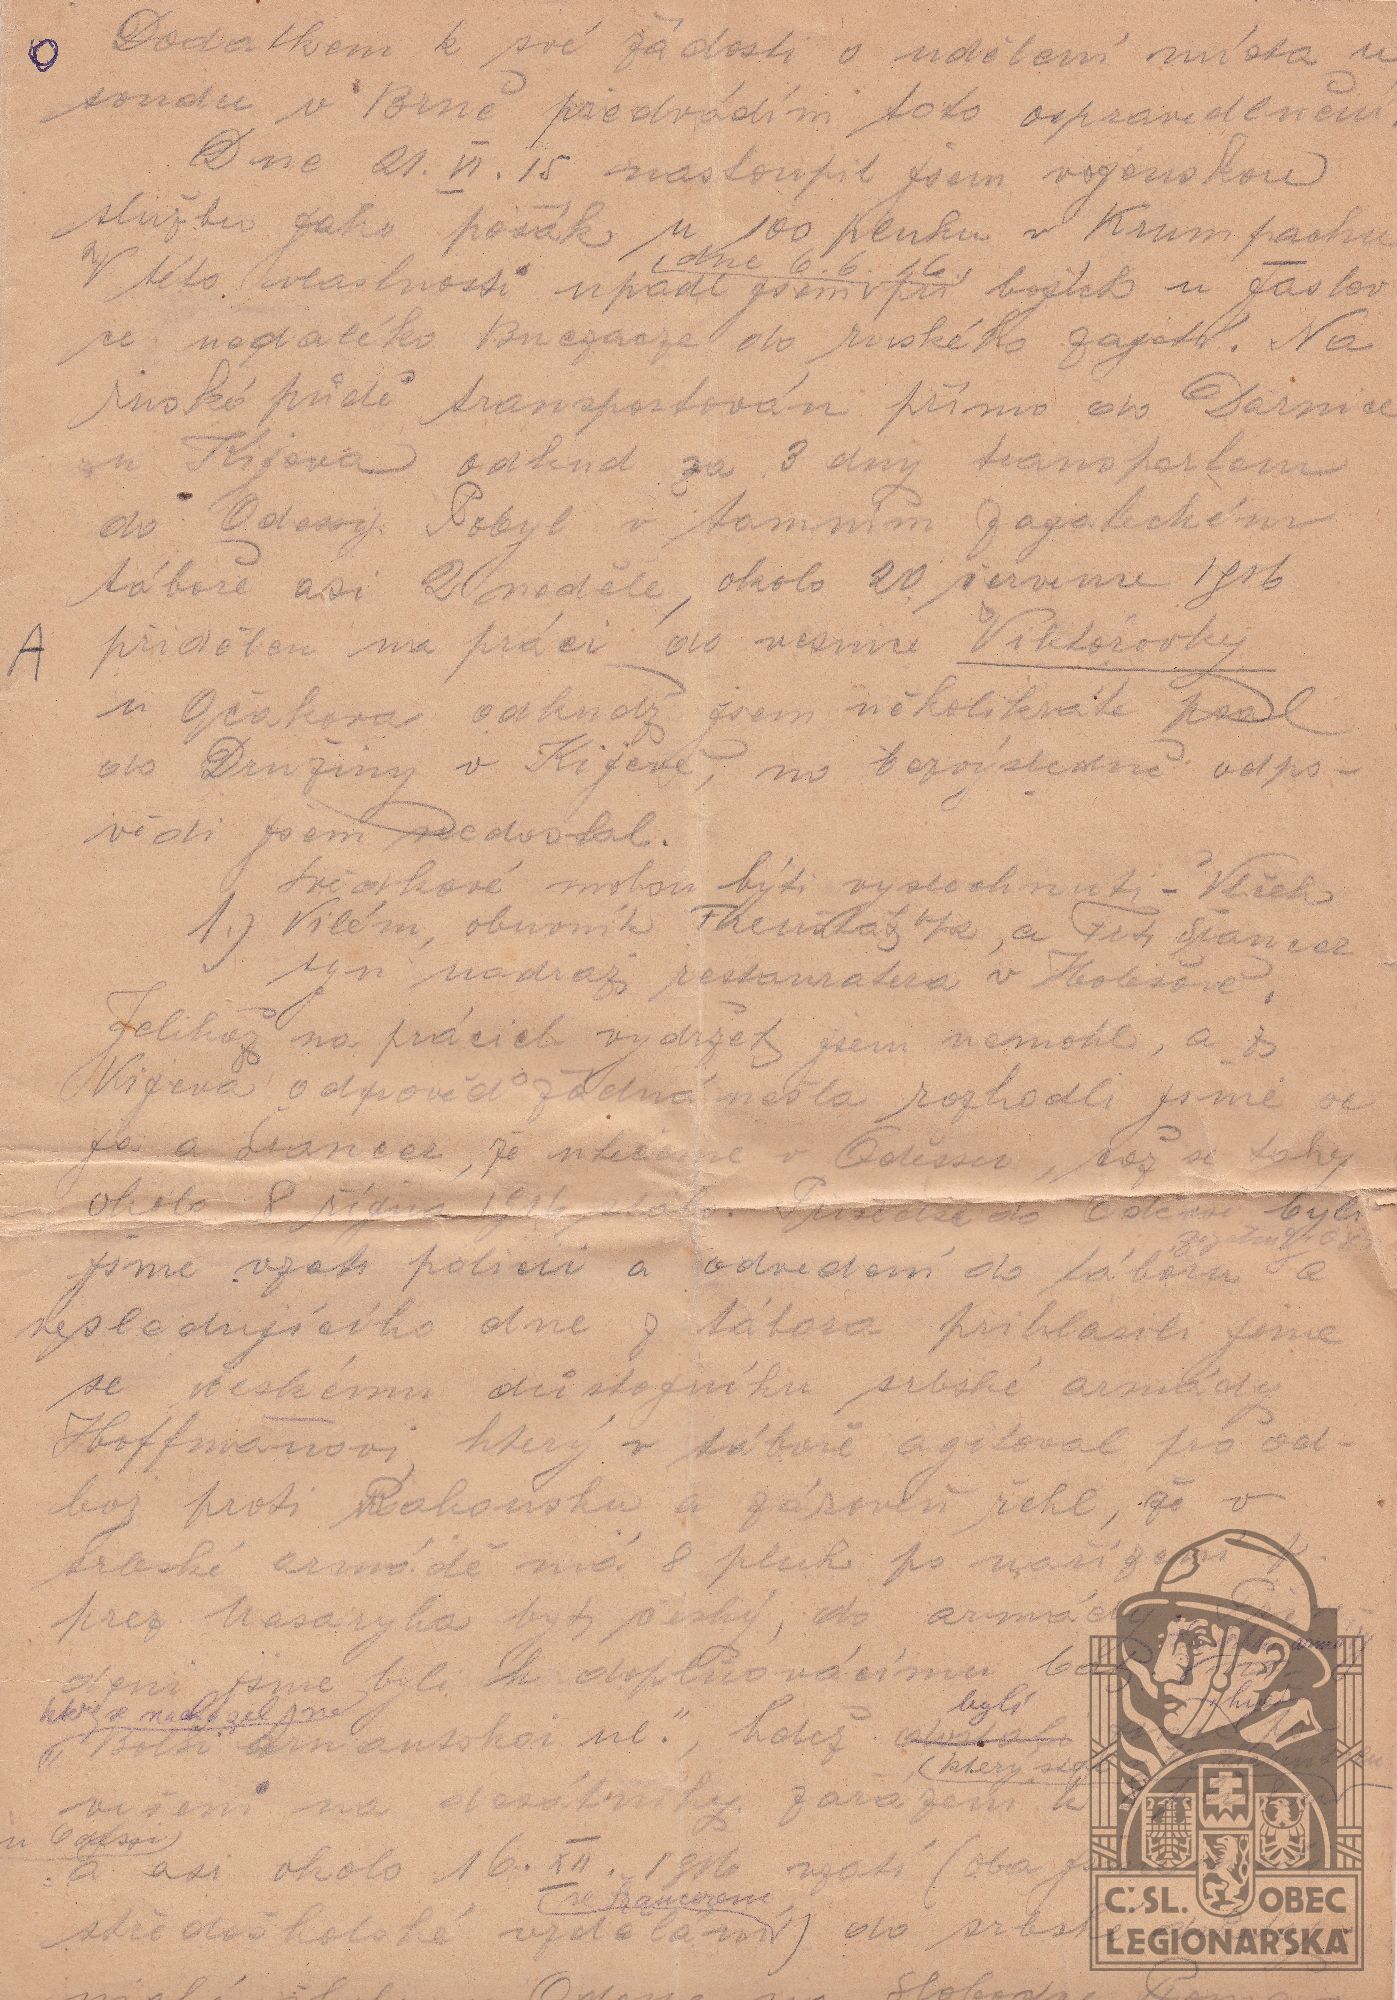 Dodatkem k své žádosti o udělení místa u
soudu v Brně předvádím toto ospravedlnění.
Dne 21. VI. 15 nastoupil jsem vojenskou
službu jako pěšák u 100 pluku v Krumpachu
(dne 6. 6. 16.)
V této vlastnosti upadl jsem při bojích u Jaslov
ce nedaleko Buczacze do ruského zajetí. Na
ruské půdě transportován přímo do Darnice
u Kijeva odkud za 3 dny transportem
do Odessy. Pobyl v tamním zajateckém
táboře asi 2 neděle, okolo 20 července 1916
A přidělen na práci do vesnice Viktorovky
u Očakova odkudž jsem několikráte psal
do Družiny v Kijevě, no bezvýsledně odpo-
vědi jsem nedostal.
Svědkové mohou býti vyslechnuti - Vlček
1.) Vilém, obuvník Frenštát p/R, a Frt. Šrancer
syn nádraž. restauratera v Holešově.
Jelikož na pracích vydržet jsem nemohl, a z
Kijeva odpověď žádná nešla rozhodli jsme se
já a Šrancer, že utečeme v Odessu, což se taky
okolo 8 října 1916 stalo. Přišedše do Odessi byli
jsme vzati policií a odvedeni do táboru a
následujícího dne z tábora přihlásili jsme
se českému důstojníku srbské armády
Hoffmanovi, který v táboře agitoval pro od-
boj proti Rakousku a zároveň řekl, že v
srbské armádě má 8 pluk po nařízení p.
prez Masaryka být český, do armády.
deni jsme byli k doplňovacímu
který se nacházel na
byli
"Bolši Arnautskoi ul.", kdež
(který
výšeni na desátníky zařazeni k
u Odessi)
a asi okolo 16. XII. 1916 vzati (oba
(se Šrancerem)
středoškolské vzdělání) do srbské
Č.SL. OBEC
LEGIONÁŘSKÁ